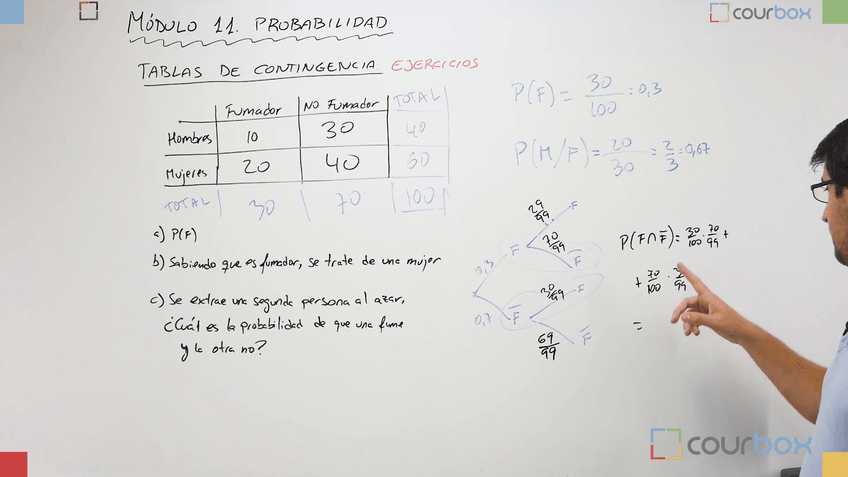 MÓDULO 11. PROBABILIDAD
courbox
TABLAS DE CONTINGENCIA. EJERCICIOS
FUMADOR NO FUMADOR TOTAL
Hombres 10 30 40
Mujeres 20 40 60
TOTAL 30 70 100
a) P(F)
b) Sabiendo que es fumador, se trate de una mujer
c) Se extrae una segunda persona al azar,
¿Cuál es la probabilidad de que una fume
y la otra no?
P(F) = 30/100 = 0,3
P(M/F) = 20/30 = 2/3 = 0,67
29/99 F
0,3 F 70/99 F̅
0,7 F̅ 30/99 F
69/99 F̅
P(F∩F̅) = 30/100 · 70/99 +
+ 70/100 · 99
=
courbox